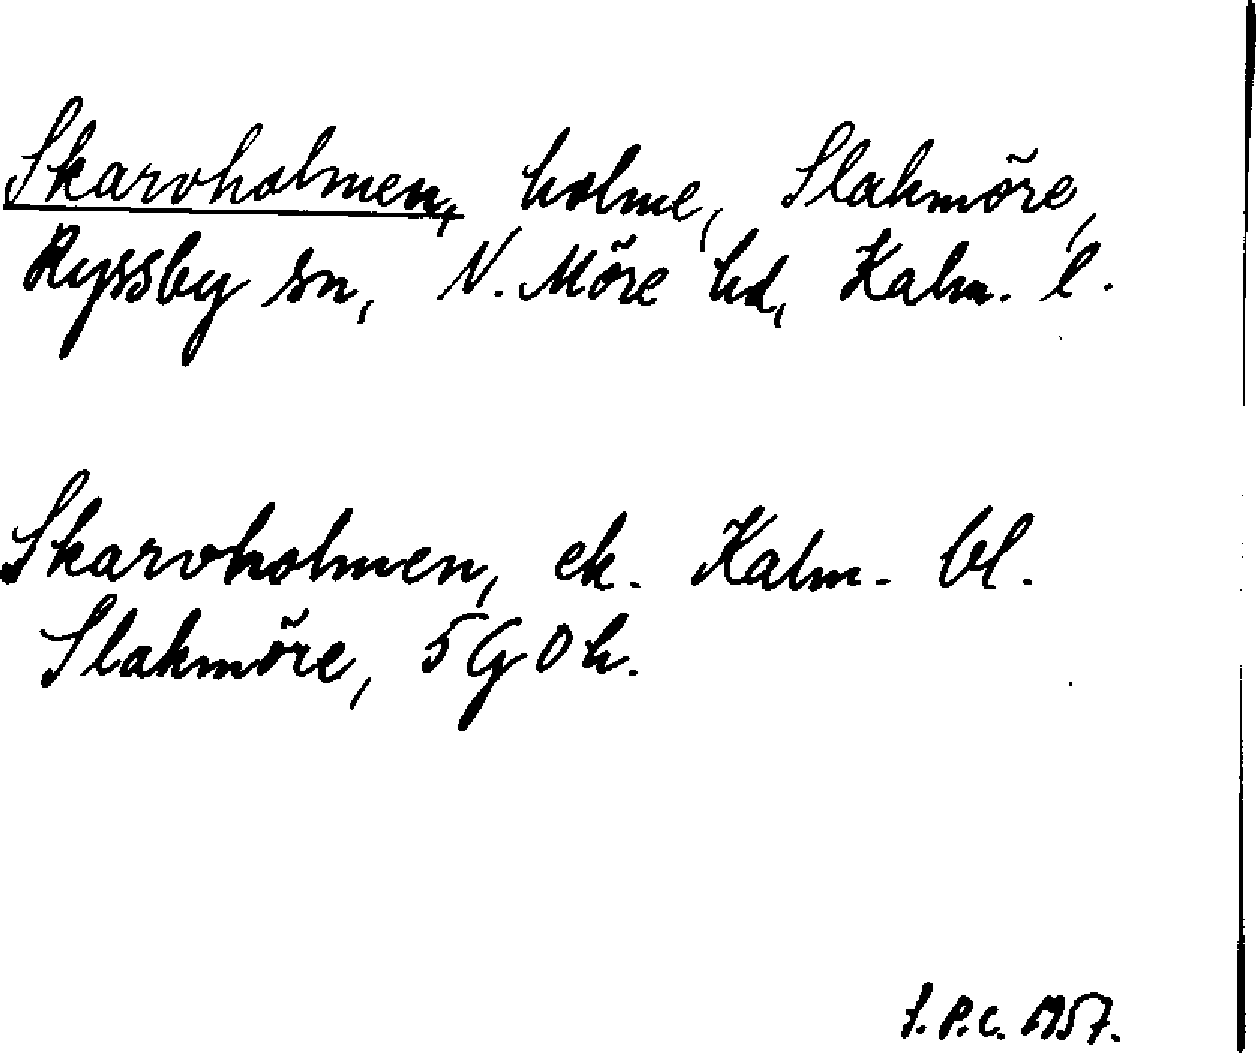 Skarvholmen, holme, Slakmöre,
Ryssby sn, N. Möre hd, Kalm. l.
Skarvholmen, ek. Kalm. bl.
Slakmöre, 5 G O h.
P.C. 1957.